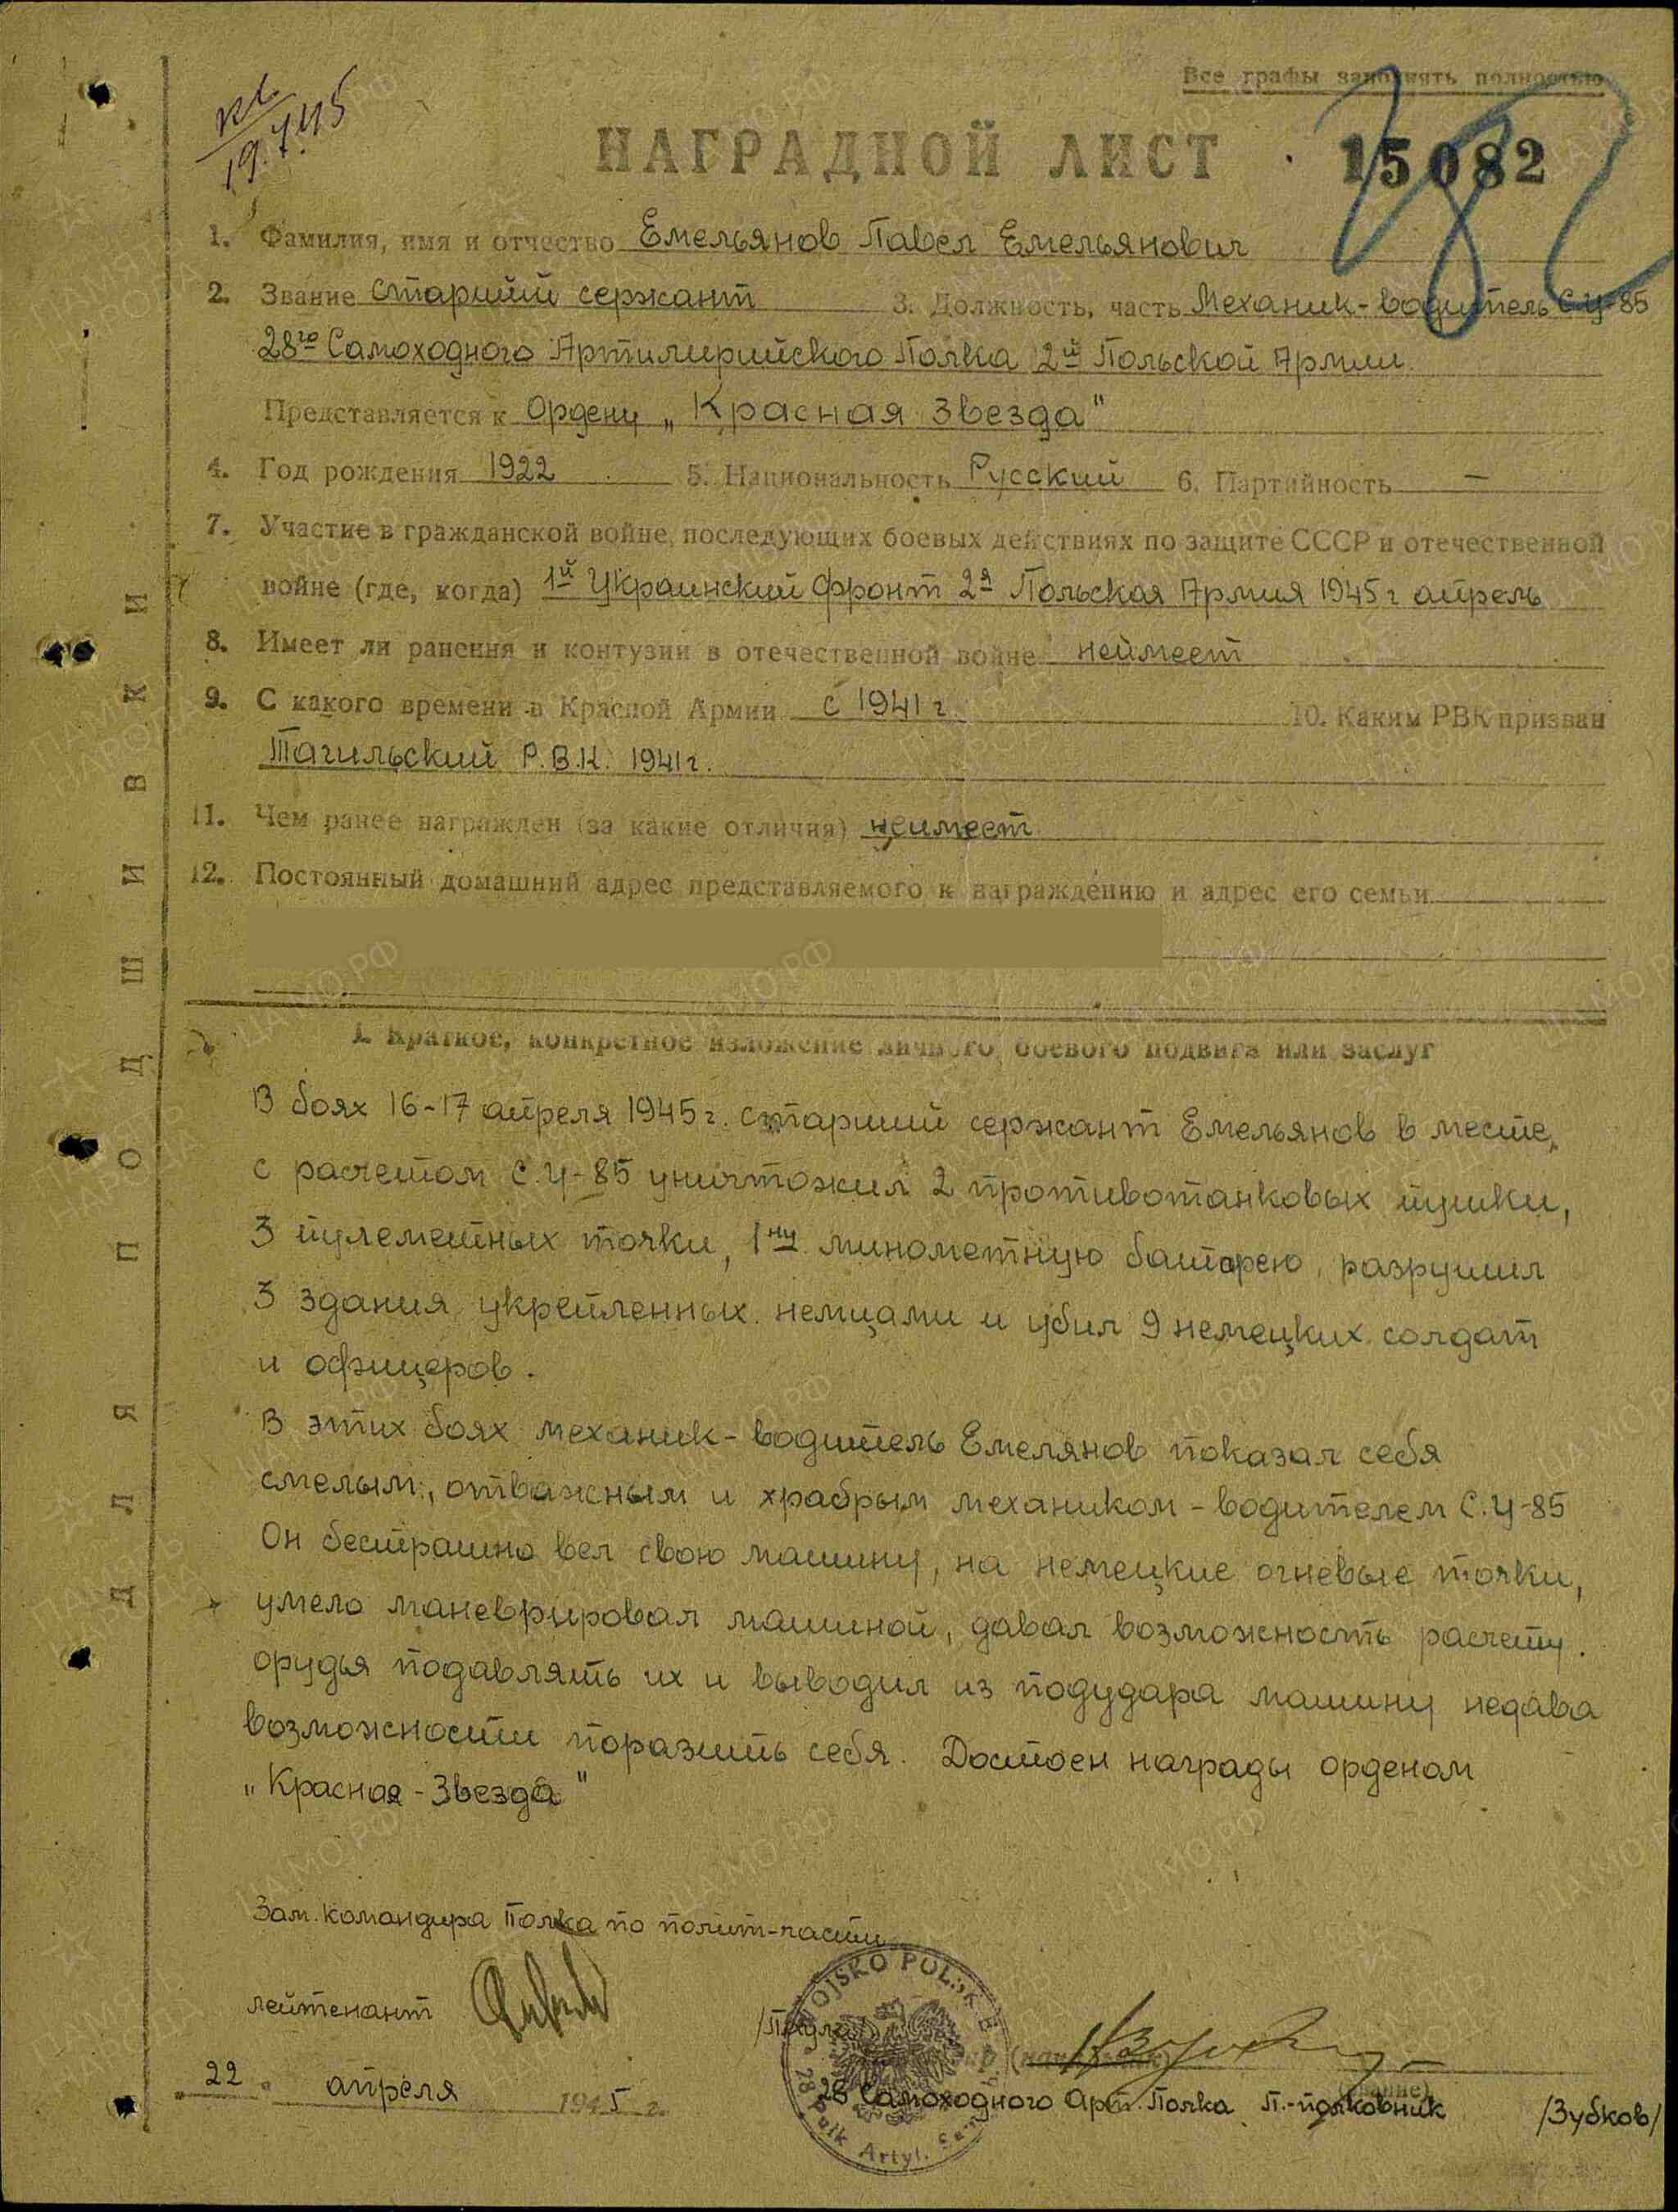 Все графы заполнять полностью
19.7.45
НАГРАДНОЙ ЛИСТ
15082
1. Фамилия, имя и отчество Емельянов Павел Емельянович
2. Звание старший сержант 3. Должность, часть Механик-водитель С.У-85
28го Самоходного Артилирийского Полка 2й Польской Армии.
Представляется к Ордену „Красная Звезда"
4. Год рождения 1922 5. Национальность Русский 6. Партийность —
7. Участие в гражданской войне, последующих боевых действиях по защите СССР и отечественной
войне (где, когда) 1й Украинский фронт 2я Польская Армия 1945г апрель
8. Имеет ли ранения и контузии в отечественной войне неимеет
9. С какого времени в Красной Армии с 1941г 10. Каким РВК призван
Тагильский Р.В.К. 1941г.
11. Чем ранее награжден (за какие отличия) неимеет
12. Постоянный домашний адрес представляемого к награждению и адрес его семьи
ДЛЯ ПОДШИВКИ
I. Краткое, конкретное изложение личного боевого подвига или заслуг
В боях 16-17 апреля 1945г. старший сержант Емельянов в месте,
с расчетом С.У-85 уничтожил 2 противотанковых пушки,
3 пулеметных точки, 1ну минометную батарею, разрушил
3 здания укрепленных немцами и убил 9 немецких солдат
и офицеров.
В этих боях механик-водитель Емелянов показал себя
смелым, отважным и храбрым механиком-водителем С.У-85
Он бестрашно вел свою машину, на немецкие огневые точки,
умело маневрировал машиной, давал возможность расчету
орудья подавлять их и выводил из подудара машину недава
возможности поразить себя. Достоен награды орденом
„Красная-Звезда"
Зам. командира Полка по полит-части
лейтенант
WOJSKO POLSKIE
28 Pułk Artyl.
28 Самоходного Арт. Полка П.-полковник /Зубков/
„22" апреля 1945 г.
ЦАМО.РФ
ПАМЯТЬ НАРОДА